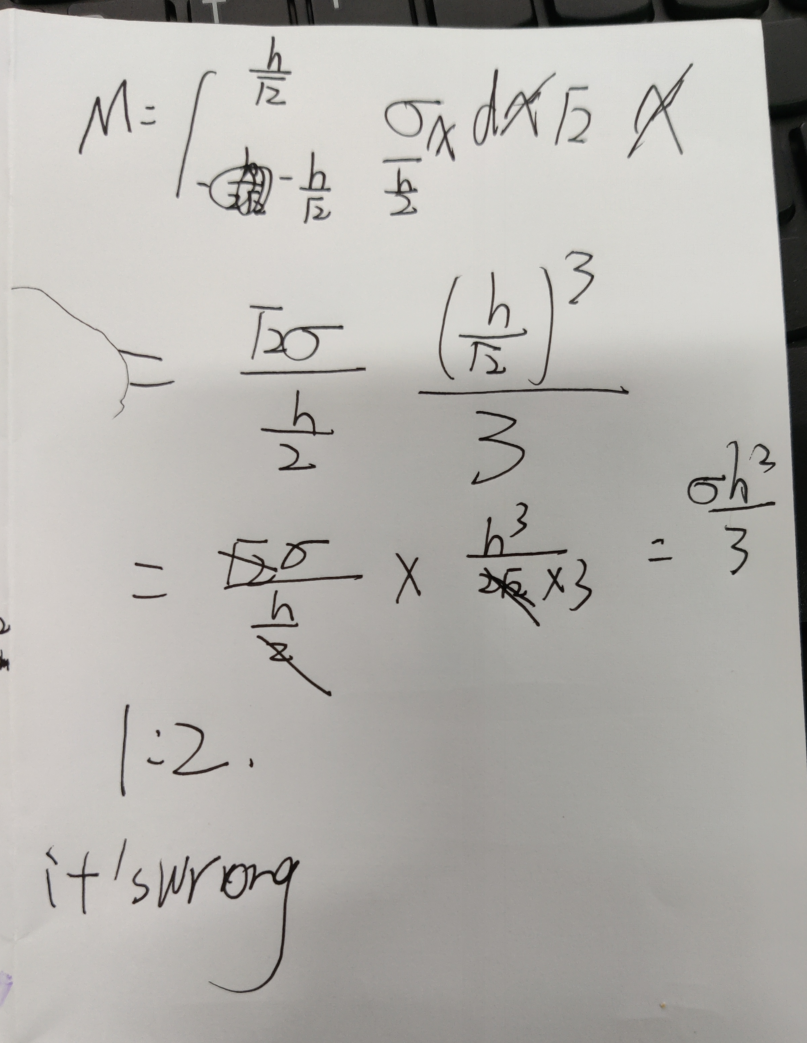 M = ∫_{-h/√2}^{h/√2} σx/(h/2) dx √2 x
= √2σ/(h/2) (h/√2)^3/3
= √2σ/(h/2) × h^3/(2√2×3) = σh^2/3
1:2.
it's wrong